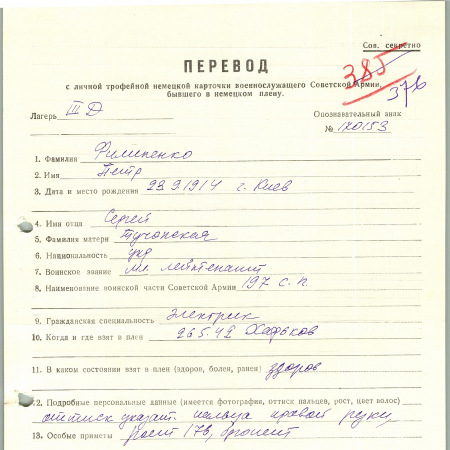 Сов. секретно
385
376
ПЕРЕВОД
с личной трофейной немецкой карточки военнослужащего Советской Армии,
бывшего в немецком плену.
Лагерь III Д
Опознавательный знак
№ 170153
1. Фамилия Филипенко
2. Имя Петр
3. Дата и место рождения 23.9.1914 г. Киев
4. Имя отца Сергей
5. Фамилия матери Тучапская
6. Национальность укр
7. Воинское звание мл. лейтенант
8. Наименование воинской части Советской Армии 197 с. п.
9. Гражданская специальность электрик
10. Когда и где взят в плен 26.5.42 Харьков
11. В каком состоянии взят в плен (здоров, болен, ранен) здоров
12. Подробные персональные данные (имеется фотография, оттиск пальцев, рост, цвет волос)
оттиск указат. пальца правой руки,
13. Особые приметы рост 176, брюнет